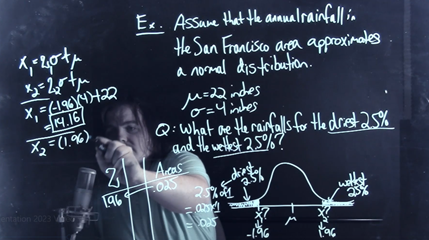 Ex. Assume that the annual rainfall in
the San Francisco area approximates
a normal distribution.
μ=22 inches
σ=4 inches
Q: What are the rainfalls for the driest 2.5%
and the wettest 2.5%?
x₁=z₁σ+μ
x₂=z₂σ+μ
x₁=(-1.96)(4)+22
=14.16
x₂=(1.96)
Z
Areas
1.96
.025
2.5%
=.025
driest
2.5%
wettest
2.5%
x?
μ
x?
-1.96
1.96